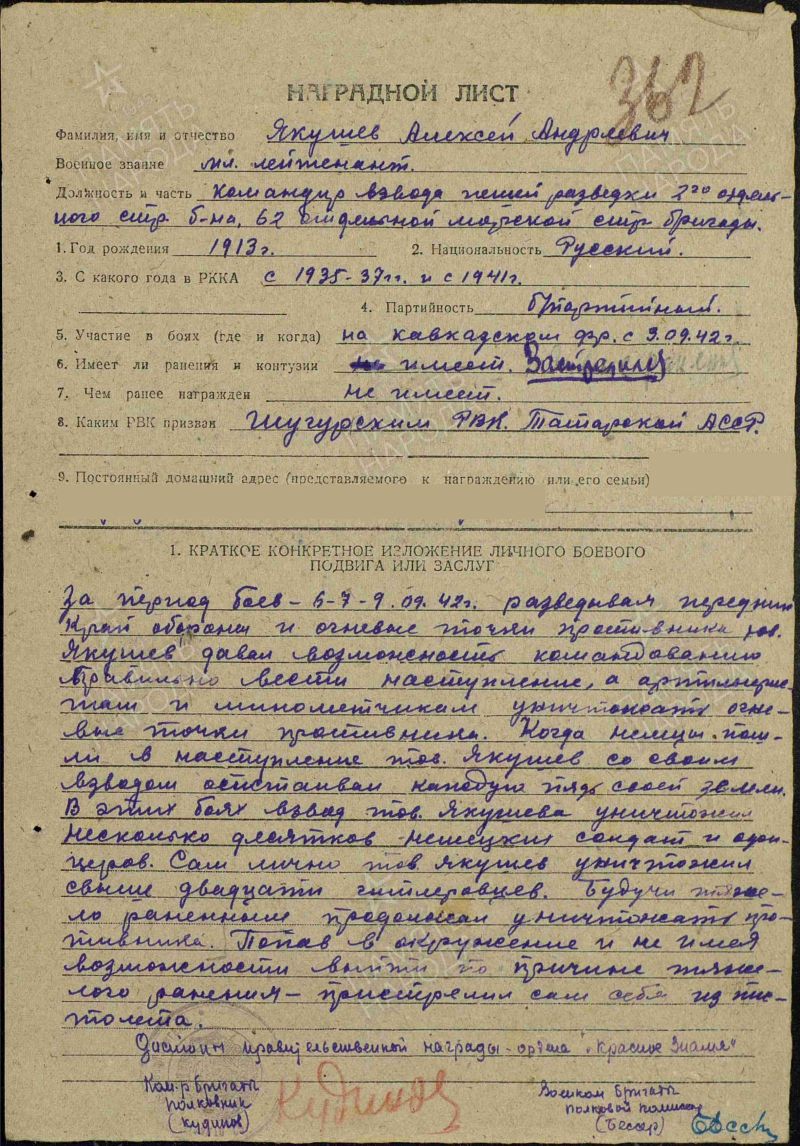 362
НАГРАДНОЙ ЛИСТ
Фамилия, имя и отчество Якушев Алексей Андреевич
Военное звание мл. лейтенант.
Должность и часть командир взвода пешей разведки 2го отдель-
ного стр б-на, 62 отдельной морской стр бригады.
1. Год рождения 1913г. 2. Национальность Русский.
3. С какого года в РККА с 1935-37гг. и с 1941г.
4. Партийность б/партийный.
5. Участие в боях (где и когда) на кавказском фр. с 9.09.42г.
6. Имеет ли ранения и контузии имеет.
7. Чем ранее награжден не имеет.
8. Каким РВК призван Шугурским РВК. Татарской АССР.
9. Постоянный домашний адрес (представляемого к награждению или его семьи)
1. КРАТКОЕ КОНКРЕТНОЕ ИЗЛОЖЕНИЕ ЛИЧНОГО БОЕВОГО
ПОДВИГА ИЛИ ЗАСЛУГ
За период боев - 6-7-9.09.42г. разведывая передний
край обороны и огневые точки противника тов.
Якушев давал возможность командованию
правильно вести наступление, а артиллерис-
там и минометчикам уничтожать огне-
вые точки противника. Когда немцы пош-
ли в наступление тов. Якушев со своим
взводом отстаивал каждую пядь своей земли.
В этих боях взвод тов. Якушева уничтожил
несколько десятков немецких солдат и офи-
церов. Сам лично тов. Якушев уничтожил
свыше двадцати гитлеровцев. Будучи тяже-
ло раненным продолжал уничтожать про-
тивника. Попав в окружение и не имея
возможности выйти по причине тяже-
лого ранения - пристрелил сам себя из пис-
толета.
Достоин правительственной награды - ордена "Красное Знамя"
Ком-р бригады
полковник
(Кудинов)
Кудинов
Военком бригады
полковой комиссар
(Бесчер)